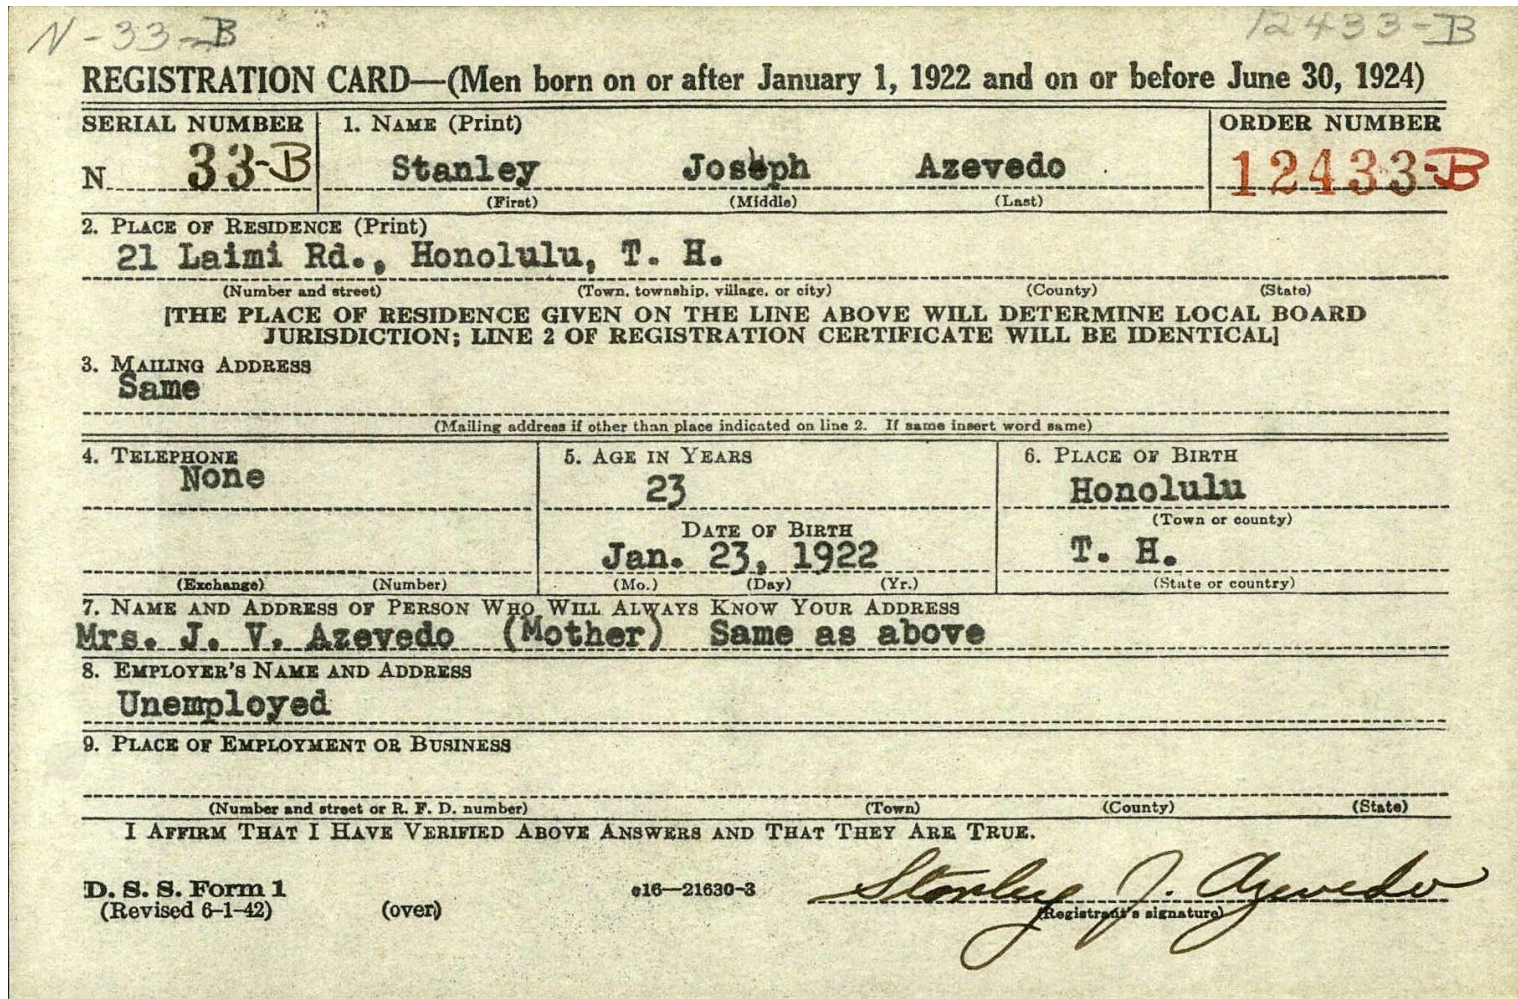 N-33-B 12433-B
REGISTRATION CARD—(Men born on or after January 1, 1922 and on or before June 30, 1924)
SERIAL NUMBER 1. NAME (Print) ORDER NUMBER
N 33-B Stanley Joseph Azevedo 12433-B
(First) (Middle) (Last)
2. PLACE OF RESIDENCE (Print)
21 Laimi Rd., Honolulu, T. H.
(Number and street) (Town, township, village, or city) (County) (State)
[THE PLACE OF RESIDENCE GIVEN ON THE LINE ABOVE WILL DETERMINE LOCAL BOARD
JURISDICTION; LINE 2 OF REGISTRATION CERTIFICATE WILL BE IDENTICAL]
3. MAILING ADDRESS
Same
(Mailing address if other than place indicated on line 2. If same insert word same)
4. TELEPHONE 5. AGE IN YEARS 6. PLACE OF BIRTH
None 23 Honolulu
(Town or county)
DATE OF BIRTH
Jan. 23, 1922 T. H.
(Exchange) (Number) (Mo.) (Day) (Yr.) (State or country)
7. NAME AND ADDRESS OF PERSON WHO WILL ALWAYS KNOW YOUR ADDRESS
Mrs. J. V. Azevedo (Mother) Same as above
8. EMPLOYER'S NAME AND ADDRESS
Unemployed
9. PLACE OF EMPLOYMENT OR BUSINESS
(Number and street or R. F. D. number) (Town) (County) (State)
I AFFIRM THAT I HAVE VERIFIED ABOVE ANSWERS AND THAT THEY ARE TRUE.
D. S. S. Form 1 e16—21630-3 Stanley J. Azevedo
(Revised 6-1-42) (over) (Registrant's signature)